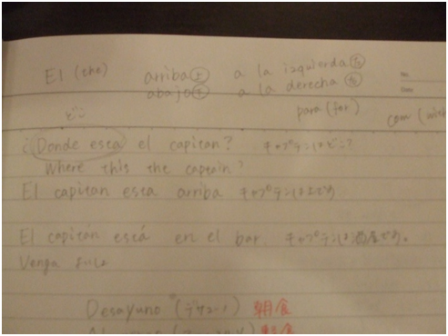 El (the) arriba㊤ a la izquierda㊧
abajo㊦ a la derecha㊨
para (for) com (with
どこ
¿Donde esta el capitan? キャプテンはどこ?
Where this the captain?
El capitan esta arriba キャプテンは上です
El capitán está en el bar. キャプテンは
Venga
Desayuno (デサユーノ) 朝食